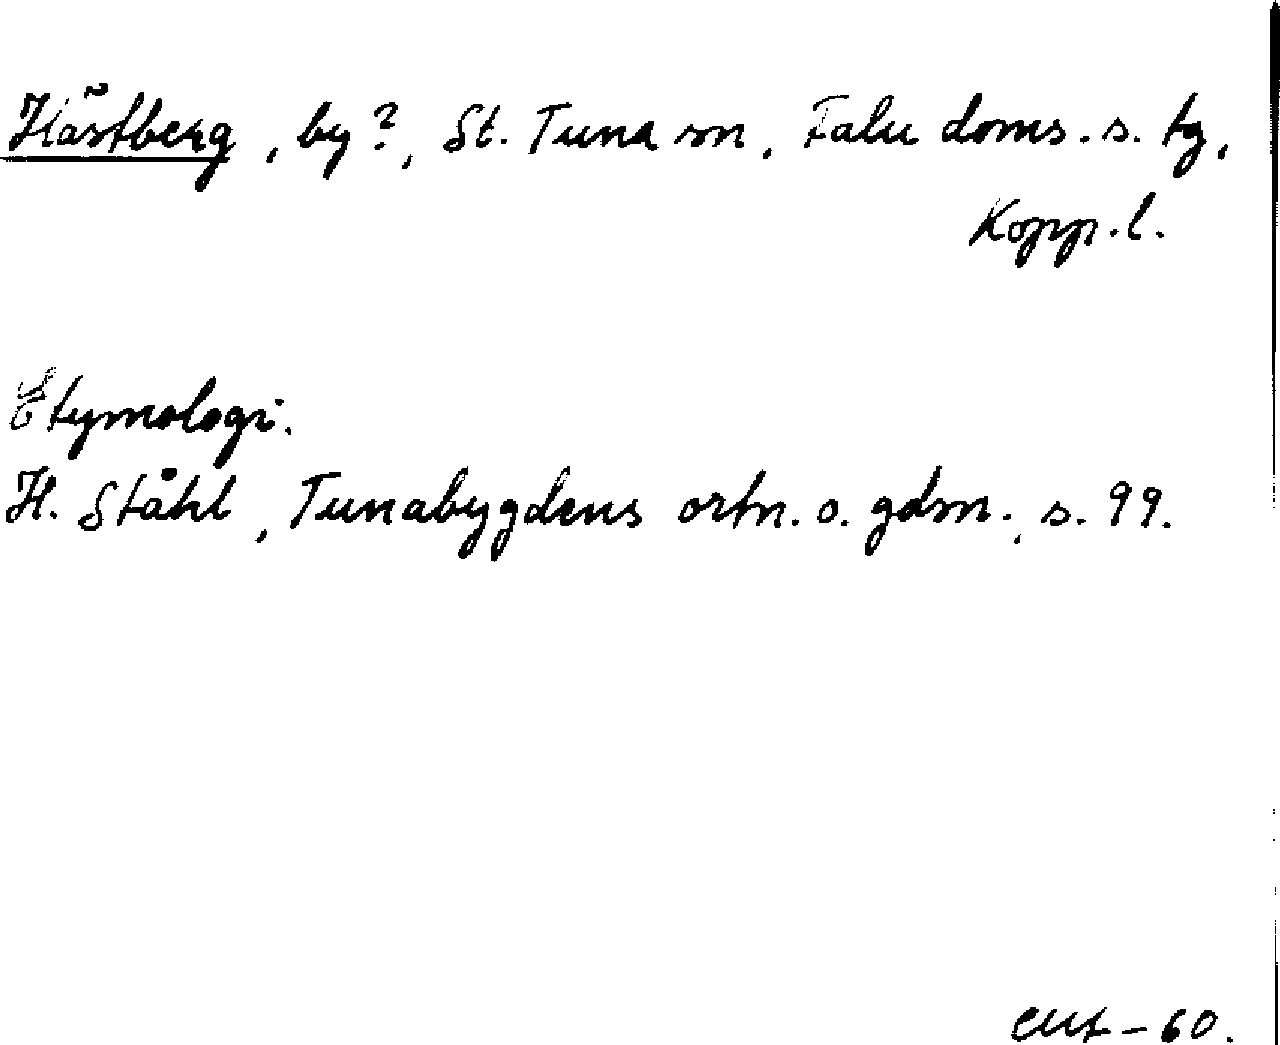 Hästberg, by?, St. Tuna sn, Falu doms. s. tg,
Kopp. l.
Etymologi.
H. Ståhl, Tunabygdens ortn. o. gdsn., s. 99.
-60.